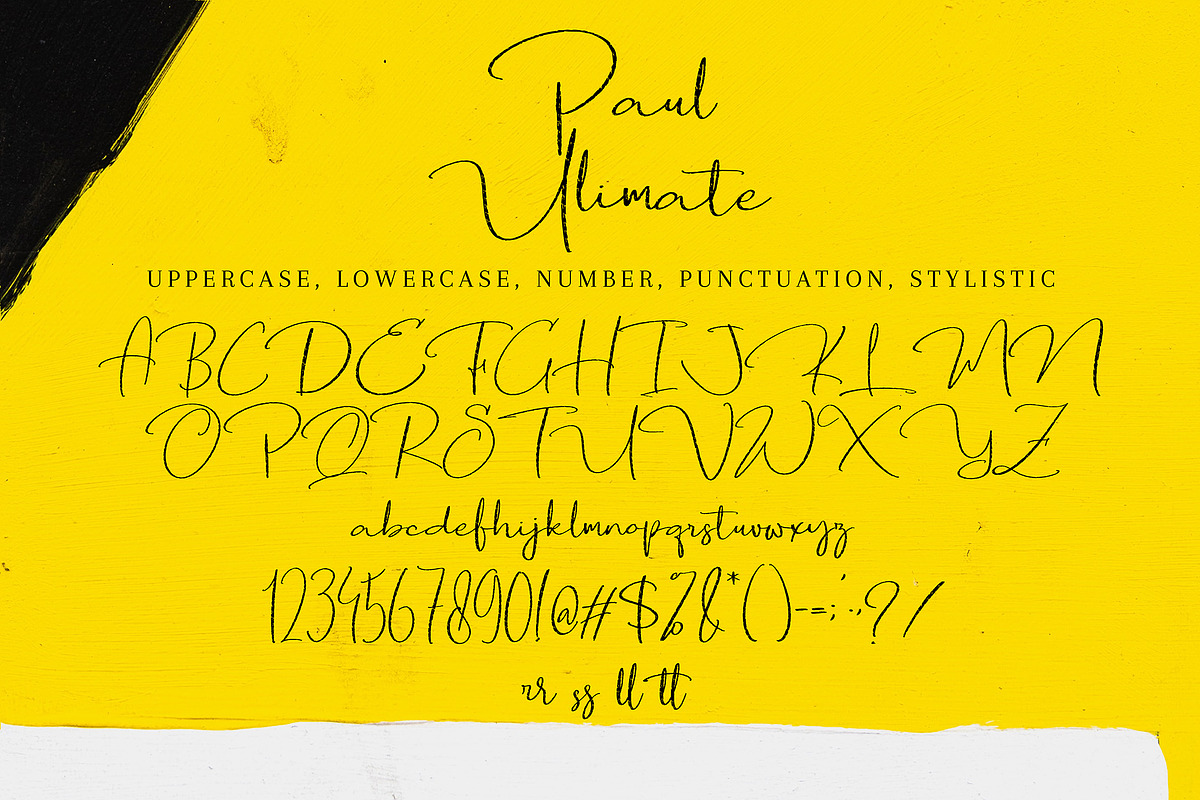 Paul
Ulimate
UPPERCASE, LOWERCASE, NUMBER, PUNCTUATION, STYLISTIC
ABCDEFGHIJKLMN
OPQRSTUVWXYZ
abcdefhijklmnopqrstuvwxyz
1234567890!@#$%&*()-=;'.,?/
rr ss ll tt